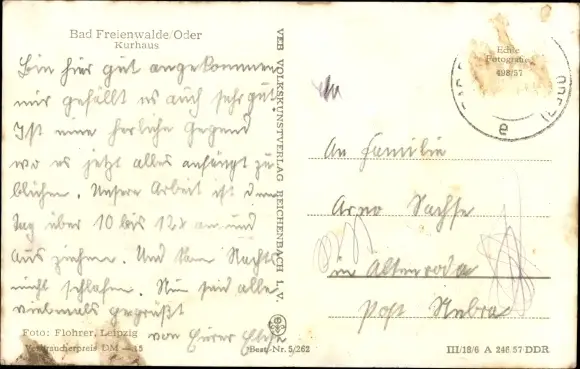 Bad Freienwalde/Oder
Kurhaus
Bin hier gut angekommen
mir gefällt es auch sehr gut.
Ist eine herliche Gegend
wo es jetzt alles anfängt zu
blühen. Unsere Arbeit ist den
Tag über 10 bis 12x an und
aus ziehen. Und kann Nachts
nicht schlafen. Nun seid alle
vielmals gegrüßt
von Eurer
Foto: Flohrer, Leipzig
Verbraucherpreis DM —.15
Best.-Nr. 5/262
VEB VOLKSKUNSTVERLAG REICHENBACH I. V.
Echte
Fotografie
498/57
e
An Familie
Arno Sachse
in Altenroda
Post Nebra
III/18/6 A 246 57 DDR